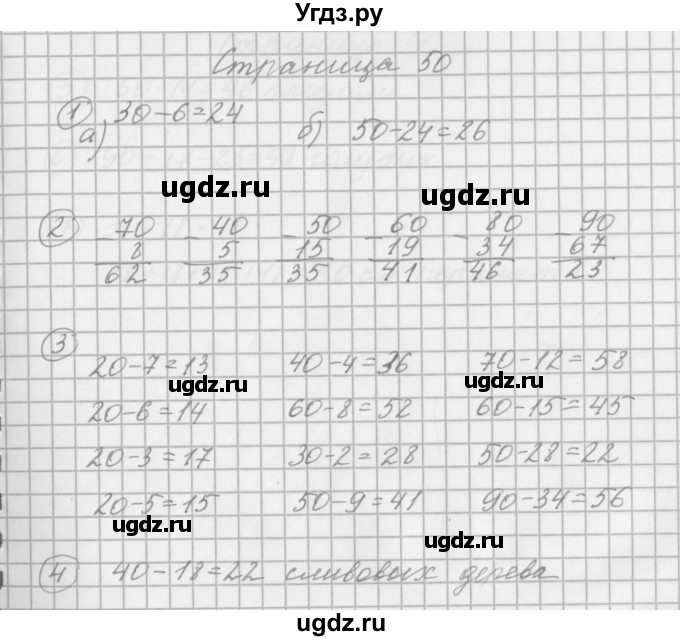 Угдз.ру
Страница 50
1 а) 30-6=24 б) 50-24=26
ugdz.ru ugdz.ru
2 70 40 50 60 80 90
- 8 - 5 - 15 - 19 - 34 - 67
62 35 35 41 46 23
3
20-7=13 40-4=36 70-12=58
ugdz.ru ugdz.ru
20-6=14 60-8=52 60-15=45
20-3=17 30-2=28 50-28=22
20-5=15 50-9=41 90-34=56
ugdz.ru ugdz.ru
4 40-18=22 сливовых дерева
ugdz.ru